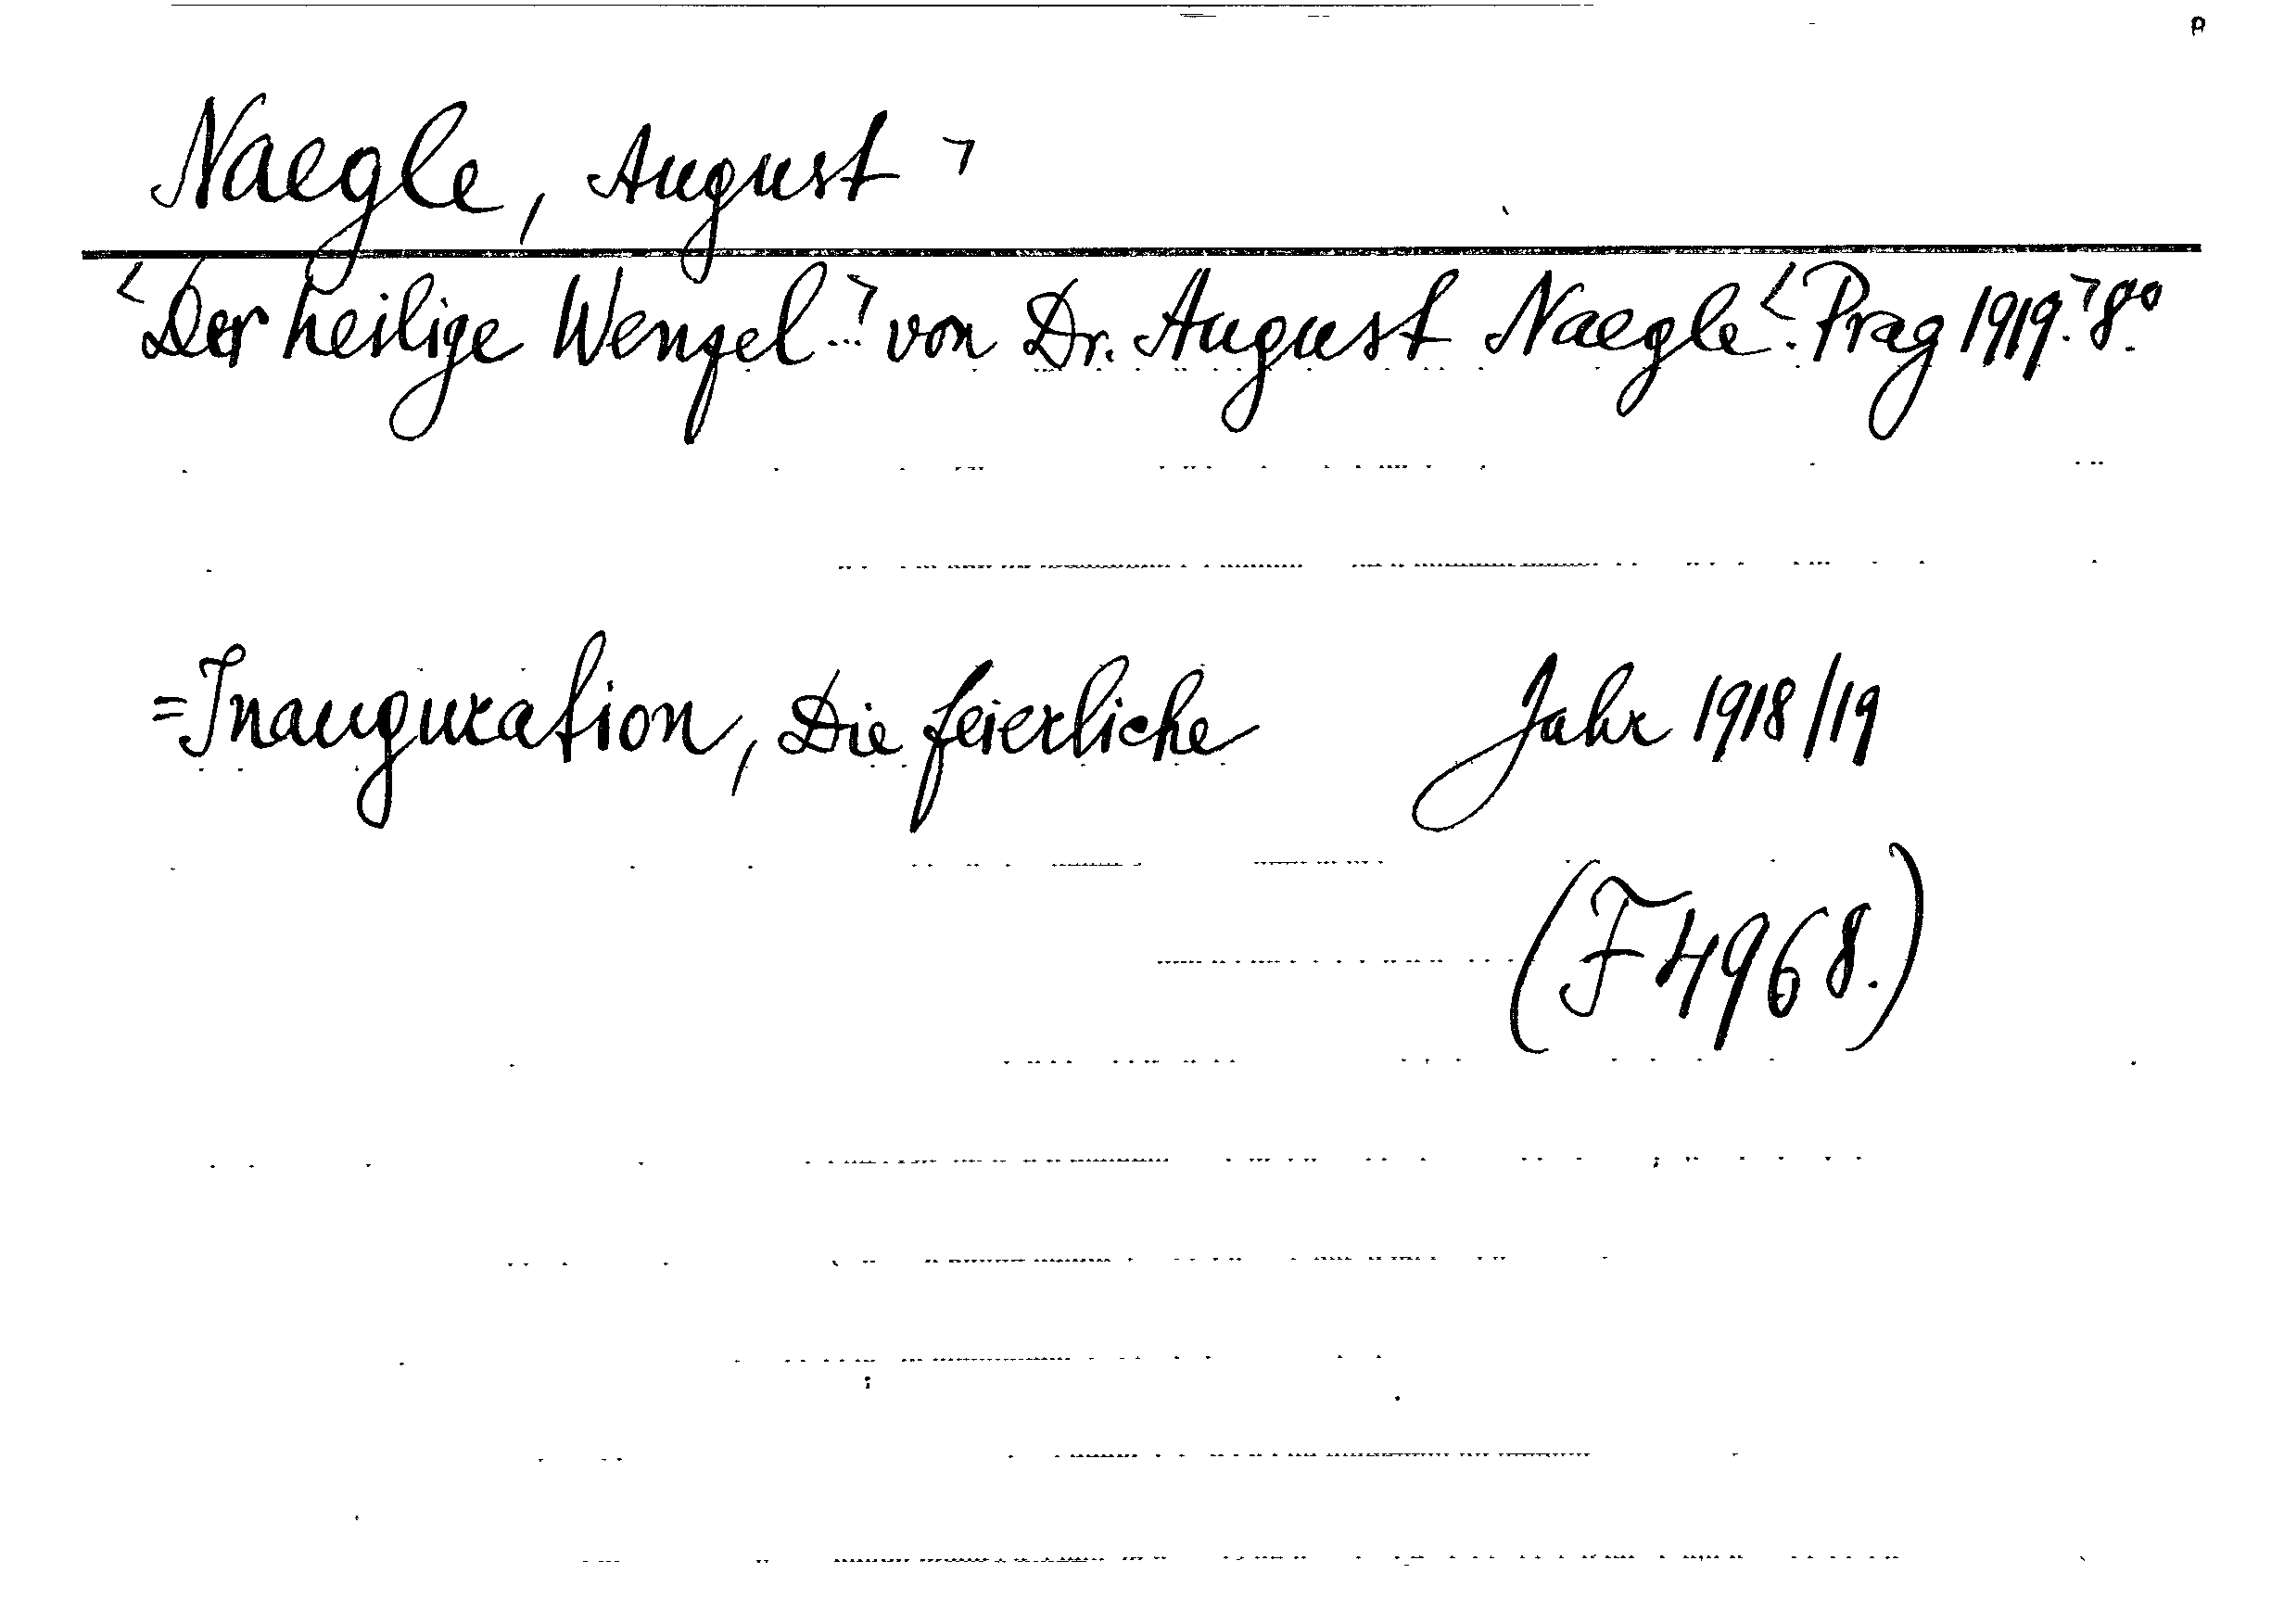 Naegle, August ⌝
<Der heilige Wenzel...⌝ von Dr. August Naegle.<Prag 1919.⌝ 8º.
=Inauguration, Die feierliche Jahr 1918/19
(F 4968.)